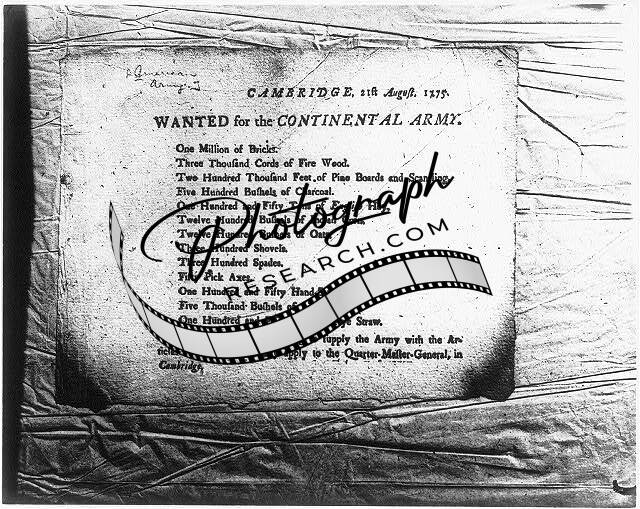 American
Army
CAMBRIDGE, 21ſt Auguſt. 1775.
WANTED for the CONTINENTAL ARMY.
One Million of Bricks.
Three Thouſand Cords of Fire Wood.
Two Hundred Thouſand Feet of Pine Boards and Scantling.
Five Hundred Buſhels of Charcoal.
One Hundred and Fifty
Twelve Hundred Buſhels of
Twelve Hundred Buſhels of Oats.
Three Hundred Shovels.
Three Hundred Spades.
Fifty Pick Axes.
One Hundred and Fifty Hand
Five Thouſand Buſhels of
One Hundred and Rye Straw.
ſupply the Army with the Ar-
apply to the Quarter-Maſter-General, in
Cambridge,
Photograph
RESEARCH.COM